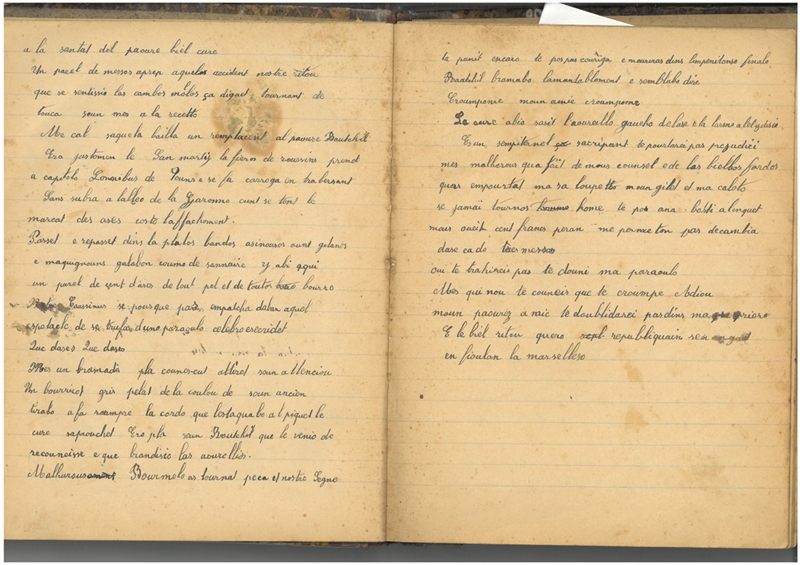 a la santat del paoure biel cure
Un parel de meses aprep aqueles accident nostre ritou
que se sentissio las cambos molos ça diguet tournant de
touca soun mes a la recetto
Me cal saquela bailla un remplaicent al paoure Bautehil
Ero justomen le San martis la fiero de roussins prend
a capitolo Lonoubus de Pouns e se fa carrega en trabersant
Sans subra a lalleo de la Garonno ount se ten le
marcat des ases costo laffachomen.
Passet e repasset dins la platos bandos asinouses ount gitanos
e maquignouns gulabon coumo de sannaire y abi aqui
un parel de cent dases de tout pel et de toutos bourro
Faussinus se pousque pas empatcha daban aquel
espetacle de se trufa duno paraoulo celebro escridet
Que dases Que dases
Mes un bramada pla couneicut attiret soun attenciou
Un bourricot gris pelat de la coulou de soun ancien
tirabo a fa roumpre la cordo que lestaquabo al piquet le
cure sapouchet Ero pla soun Bautehil que le venio de
recouneisse e que brandissio las aoureillos.
Malhurous Bourmelo as tournat peca et nostre Segne
ta punit encaro te pos pas courriga e mouriras dins limpenitenso finalo
Bautehil bramabo lamantablomen e semblabo dire
Croumpomé moun amic croumpome
Le cure abio sasit laouraillo gaucho de lase e la larmo al el y disio
Tu un sempiternel sacripant te pourtario pas prejudici
mes malherous qua fait de mous counsel e de las bielhos fardos
quas empourtat ma sa loupetto moun gilet et ma caloto
se jamai tournos home te pos ana besti a lenquet
mais oueit cent francs peran me pornetton pas decambia
dase cado tres meses
oui te trahirei pas te doune ma paraoulo
Mes qui nou te couneis que te croumpe Adiou
moun paoures a naic te doublidarei pas dins ma priero
E le biel ritou quero republiquain sen
en fioulan la marselleso